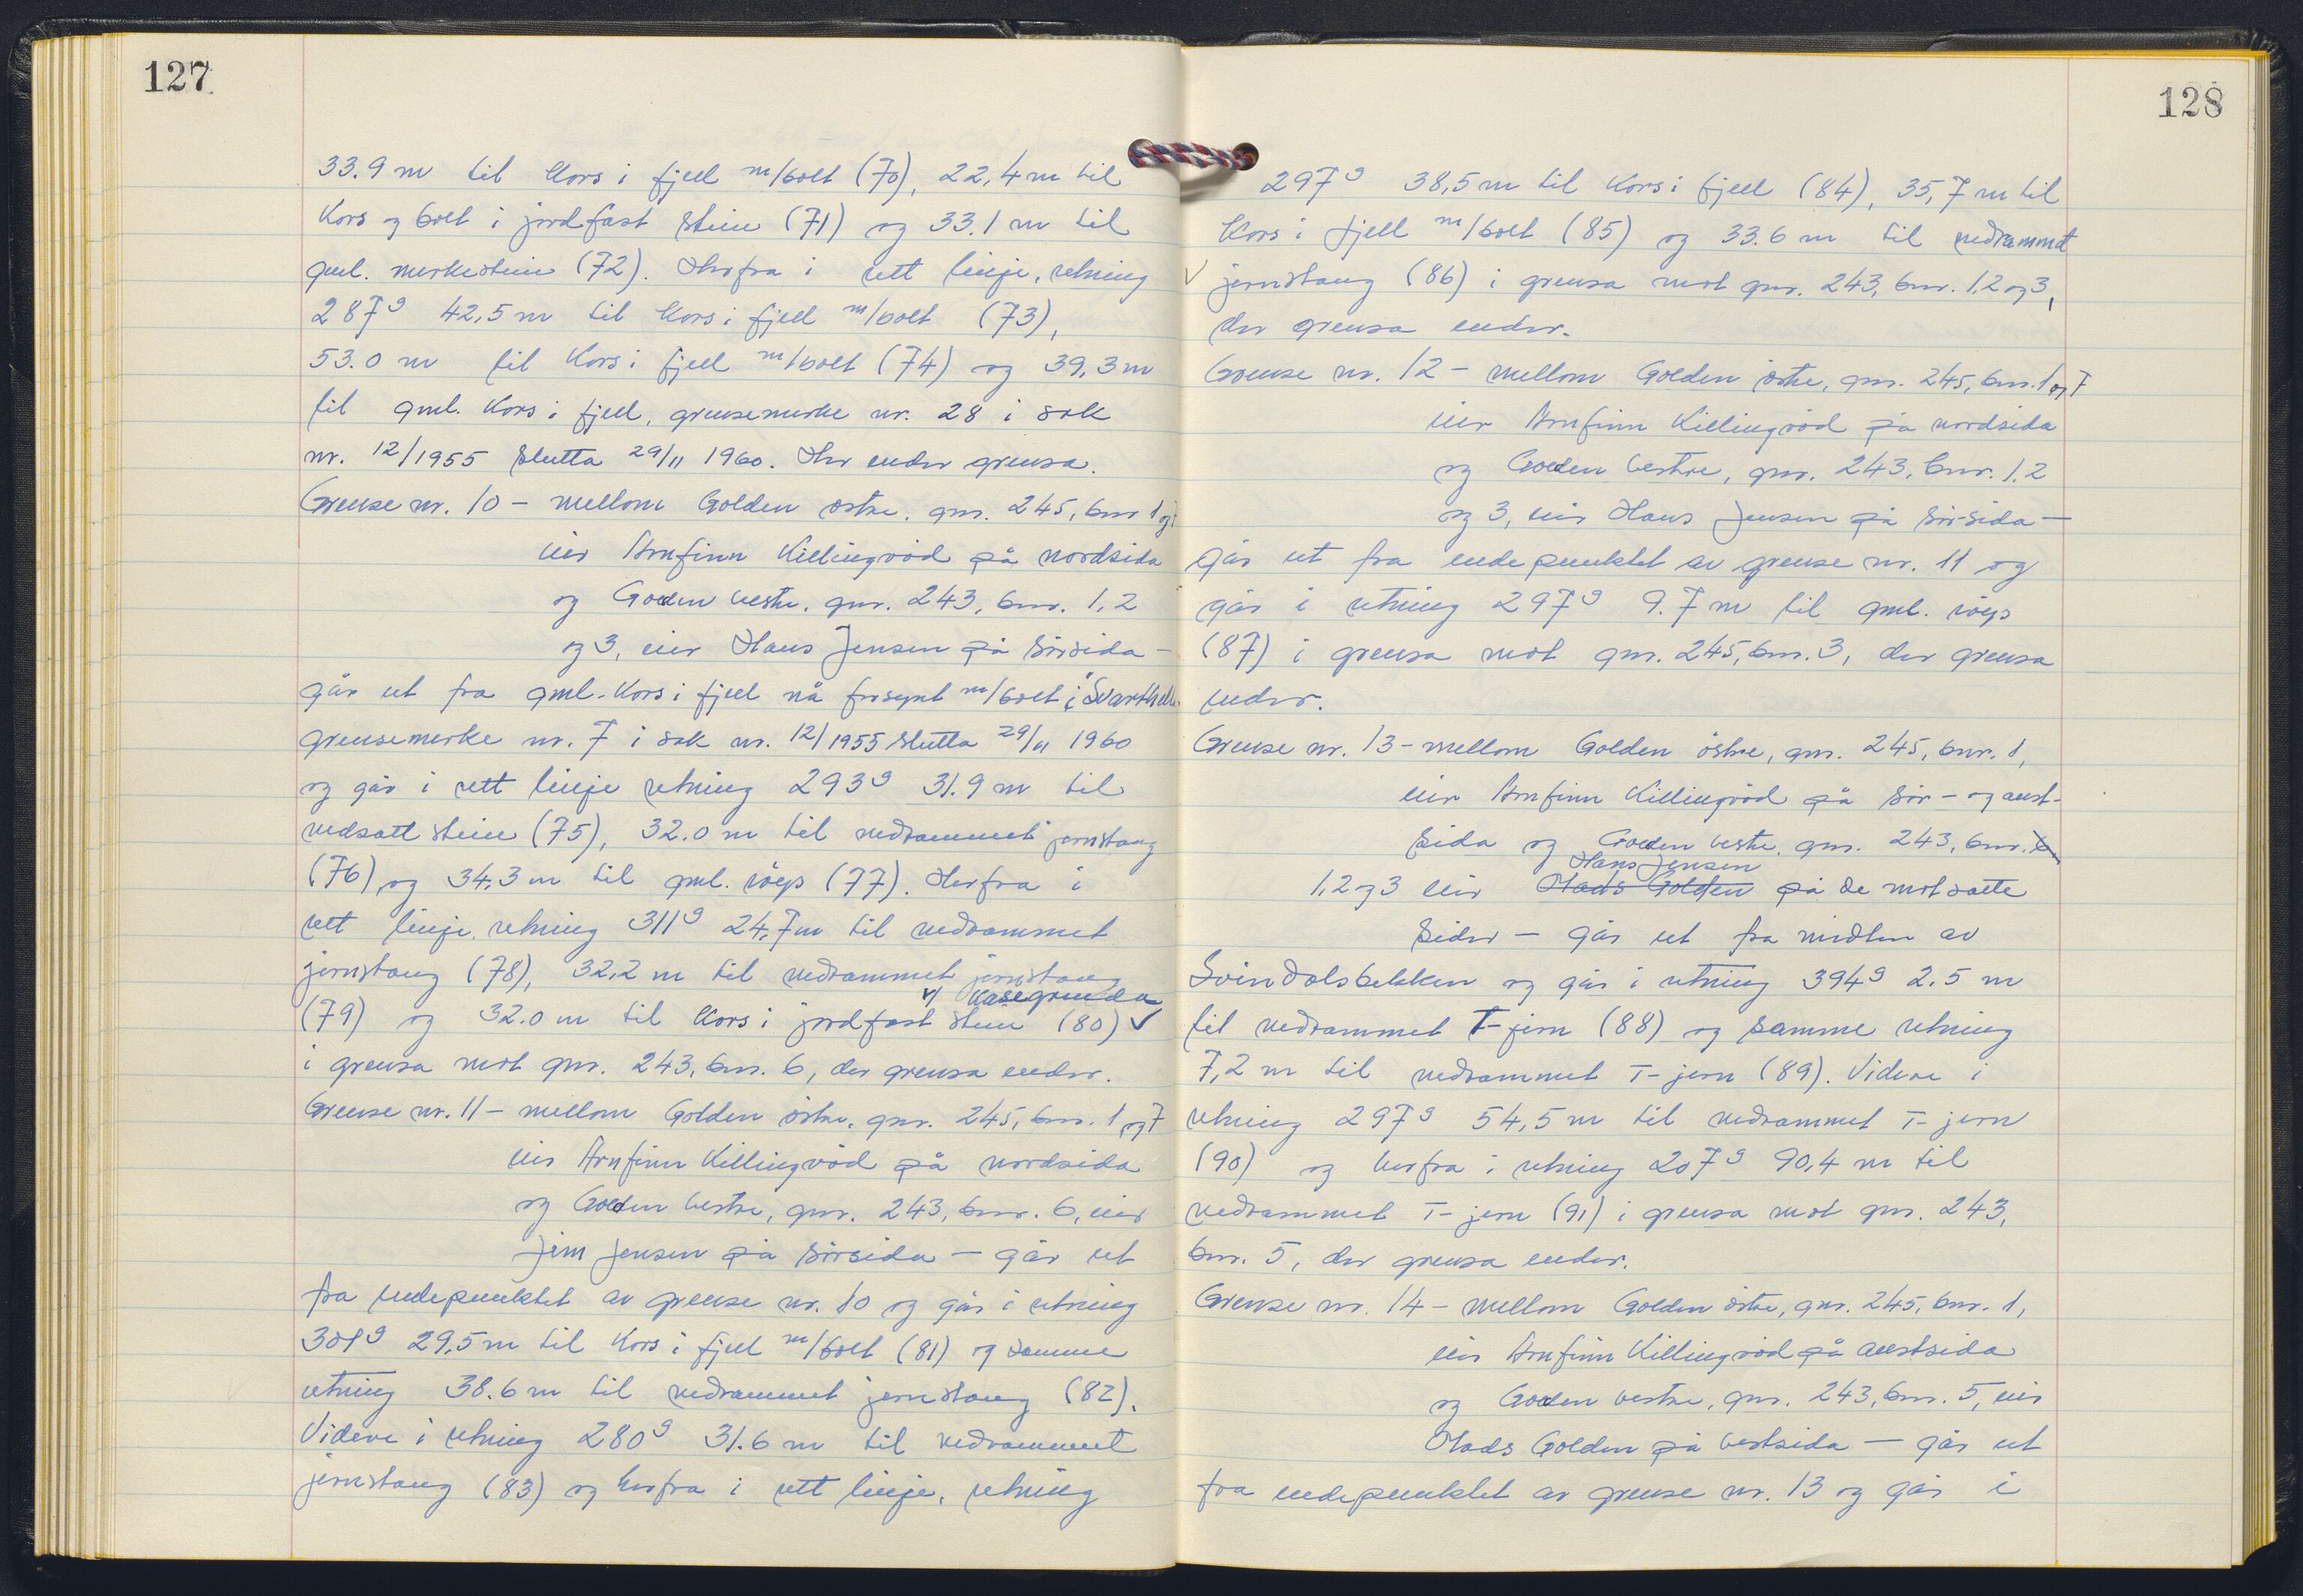 127
33.9 m til kors i fjell m/bolt (70), 22,4 m til
kors og bolt i jordfast stein (71) og 33.1 m til
gml. merkestein (72). Herfra i rett linje, retning
287g 42,5 m til kors i fjell m/bolt (73),
53.0 m til kors i fjell m/bolt (74) og 39,3 m
til gml. kors i fjell, grensemerke nr. 28 i sak
nr. 12/1955 slutta 29/11 1960. Her ender grensa.
Grense nr. 10 - mellom Golden østre, gnr. 245, bnr 1 og
eier Arnfinn Killingrød på nordsida
og Golden vestre, gnr. 243, bnr. 1, 2
og 3, eier Hans Jensen på sørsida -
går ut fra gml. kors i fjell nå forsynt m/bolt i
grensemerke nr. 7 i sak nr. 12/1955 slutta 29/11 1960
og går i rett linje retning 293g 31.9 m til
nedsatt stein (75), 32.0 m til nedrammet jernstang
(76) og 34,3 m til gml. røys (77). Herfra i
rett linje, retning 311g 24,7 m til nedrammet
jernstang (78), 32,2 m til nedrammet jernstang
v/ Kasegrunda
(79) og 32.0 m til kors i jordfast stein (80) ✓
i grensa mot gnr. 243, bnr. 6, der grensa ender.
Grense nr. 11 - mellom Golden østre, gnr. 245, bnr. 1 og 7
eier Arnfinn Killingrød på nordsida
og Golden vestre, gnr. 243, bnr. 6, eier
Jim Jensen på sørsida - går ut
fra endepunktet av grense nr. 10 og går i retning
301g 29,5 m til kors i fjell m/bolt (81) og samme
retning 38.6 m til nedrammet jernstang (82).
Videre i retning 280g 31.6 m til nedrammet
jernstang (83) og herfra i rett linje, retning
128
297g 38,5 m til kors i fjell (84), 35,7 m til
kors i fjell m/bolt (85) og 33.6 m til nedrammet
✓ jernstang (86) i grensa mot gnr. 243, bnr. 1,2 og 3,
der grensa ender.
Grense nr. 12 - mellom Golden østre, gnr. 245, bnr. 1 og 7
eier Arnfinn Killingrød på nordsida
og Golden vestre, gnr. 243, bnr. 1, 2
og 3, eier Hans Jensen på sørsida -
går ut fra endepunktet av grense nr. 11 og
går i retning 297g 9.7 m til gml. røys
(87) i grensa mot gnr. 245, bnr. 3, der grensa
ender.
Grense nr. 13 - mellom Golden østre, gnr. 245, bnr. 1,
eier Arnfinn Killingrød på sør- og aust-
sida og Golden vestre, gnr. 243, bnr.
Hans Jensen
1,2 og 3 eier Mads Golden på de motsatte
sider - går ut fra midten av
Svindalsbekken og går i retning 394g 2.5 m
til nedrammet T-jern (88) og samme retning
7,2 m til nedrammet T-jern (89). Videre i
retning 297g 54,5 m til nedrammet T-jern
(90) og herfra i retning 207g 90,4 m til
nedrammet T-jern (91) i grensa mot gnr. 243,
bnr. 5, der grensa ender.
Grense nr. 14 - mellom Golden østre, gnr. 245, bnr. 1,
eier Arnfinn Killingrød på austsida
og Golden vestre, gnr. 243, bnr. 5, eier
Mads Golden på vestsida - går ut
fra endepunktet av grense nr. 13 og går i